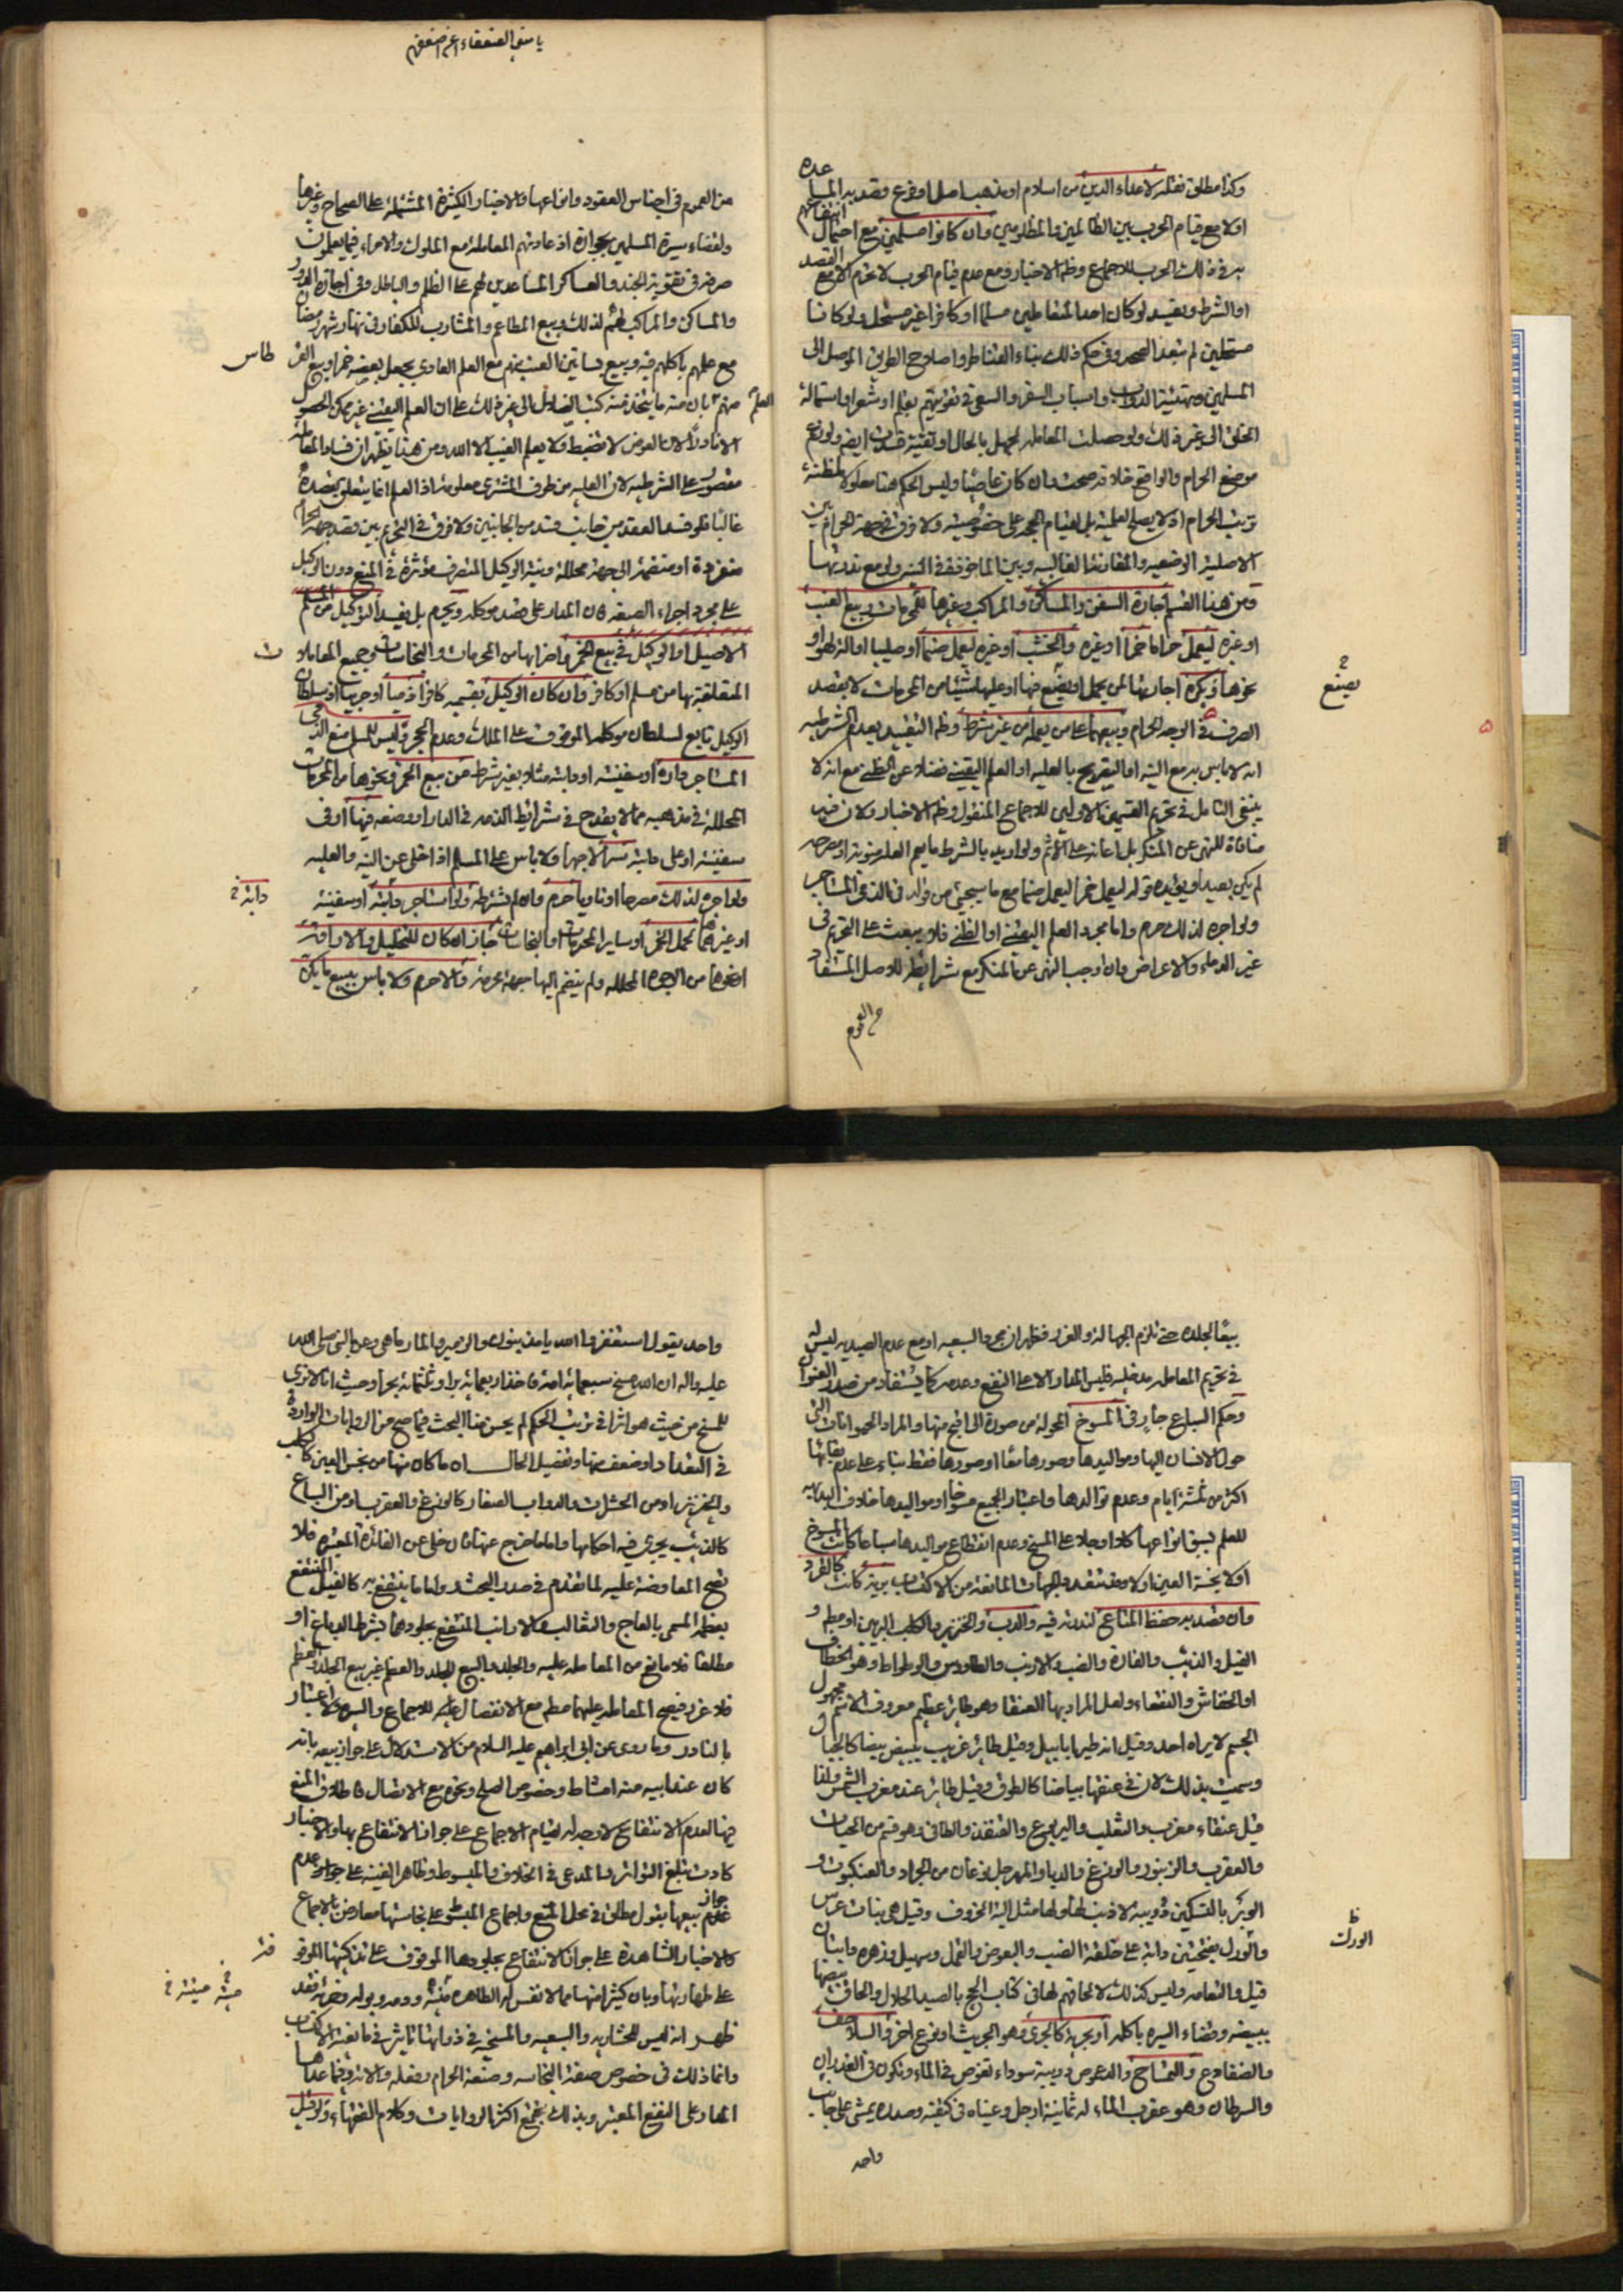 وكذا مطلق نقله لاعداء الدين من اسلام او مذهب اصل او فرع وقصد به المساعده
اولا مع قيام الحرب بين الظالمين والمظلومين وان كانوا مسلمين مع احتمال انتفاعهم
به في ذلك الحرب للاجماع وظ الاخبار ومع عدم قيام الحرب لا تحرم الا مع القصد
او الشرط ويفسد لو كان احد المتعاطيين مسلما او كافرا غير مستحل ولو كانا
مستحلين لم تبعد الصحه وفي حكم ذلك بناء القناطر واصلاح الطريق الموصل الى
المسلمين وتهيئة الدواب واسباب السفر والسعي في تقويتهم بعلم او شعر او استمالة
الخلق الى غير ذلك ولو حصلت المعامله لجهل بالحال او تقية فسدت ايضا ولو زعم
موضع الحرام والواقع خلافه صحت وان كان عاصيا وليس الحكم هنا معلولا لمظنة
ترتب الحرام اذ لا يصلح للعلية بل لقيام الحجه على خصوصيته ولا فرق في جهة الحرام بين
الاصلية الوضعيه والمقارنة الغالبيه وبين الماخوذ قصدا في البين ولو مع ندرتها
ومن هذا القسم اجارة السفن والمساكن والمراكب وغيرها للمحرمات وبيع العنب
او غيره ليعمل حراما خمرا او غيره والخشب او غيره ليعمل صنما او صليبا او الة لهو او
نحوها ويكره اجارتها لمن يحمل او يضع فيها او عليها شيئا من المحرمات لا بقصد
يصنع
الصرف في الوجه الحرام وبيعهما على من يعمله من غير شرط وظ التقييد بعدم الشرطيه
انه لا باس به مع النية او التصريح بالعليه او العلم اليقيني فضلا عن الظني مع انه لا
ينبغي التامل في تحريم القسمين الاولين للاجماع المنقول وظ الاخبار ولان فيه
منافاة للنهي عن المنكر بل اعانة على الاثم ولو اريد بالشرط ما يعم العله منوية او مصرحه
لم يكن بعيدا ويؤيده قوله ليعمل خمرا ليعمل صنما مع ما سيجيئ من قوله في الذمي المستاجر
ولو اجره لذلك حرم واما مجرد العلم اليقيني او الظني فلا يبعث على التحريم في
غير الدماء والاعراض وان اوجب النهي عن المنكر مع شرايطه للاصل المستفاد
من العموم في اجناس العقود وانواعها والاخبار الكثيرة المشتملة على الصحاح وغيرها
ولقضاء سيرة المسلمين بجوازه اذ عادتهم المعاملة مع الملوك والامراء فيما يعلمون
صرفه في تقوية الجند والعساكر المساعدين لهم على الظلم والباطل وفي اجارة الدور
والمساكن والمراكب لهم لذلك وبيع المطاعم والمشارب للكفار في نهار شهر رمضان
مع علمهم باكلهم فيه وبيع بساتين العنب منهم مع العلم العادي بجعل بعضه خمرا وبيع القر
طاس
منهم بان منه ما يتخذ منه كتب الضلال الى غير ذلك على ان العلم اليقيني غير ممكن الحصول
العلم
الا نادرا لان العوض لا تضبط ولا يعلم الغيب الا الله ومن هنا يظهر ان فساد المعاملة
مقصور على الشرطيه لان العليه من طرف المشتري معلومة اذ العلم انما يتعلق بقصده
غالبا فلو فسد العقد من جانب فسد من الجانبين ولا فرق في التحريم بين قصد جهة الحرام
منفردة او منضمة الى جهة محللة ونية الوكيل المتصرف مؤثرة في المنع دون الوكيل
على مجرد اجراء الصيغه فان المدار على قصد موكله ويحرم بل يفسد التوكيل من المسلم
الاصيل او الوكيل في بيع الخمر واضرابها من المحرمات والنجاسات وجميع المعاملات
المتعلقة بها من مسلم او كافر وان كان الوكيل بقسميه كافرا ذميا او حربيا اذ سلطان
الوكيل تابع لسلطان موكله الموقوف على الملك وعدم الحجر وليس للمسلم منع الذمي
المستاجر داره او سفينته او دابته مثلا بغير شرط من بيع الخمر ونحوها من المحرمات
المحللة في مذهبه مما لا يقدح في شرائط الذمه في الدار او وضعه فيها او في
سفينته او على دابته سرا لا جهرا ولا باس على المسلم اذ اخلى عن النيه والعليه
ولو اجره لذلك مصرحا او ناويا حرم وان لم يشترطه ولو استاجر دابته او سفينة
دابة خ
او غيرهما لحمل الخمر او ساير المحرمات او النجاسات جاز ان كان للتخليل والاراقة
او نحوها من الوجوه المحلله ولم ينضم اليها جهة محرمة والا حرم ولا باس ببيع ما يكن
بيعا لجلده حتى تلزم الجهالة والغرر فظهر ان مجرد السبعيه او مع عدم الصيديه ليس له
في تحريم المعامله مدخليه فليس المدار الا على النفع وعدمه كما يستفاد من صدر العنوان
وحكم السباع جار في المسوخ المحولة من صورة الى اقبح منها والمراد الحيوانات التي
حول الانسان اليها ومواليدها وصورها معا او صورها فقط بناء على عدم بقائها
اكثر من ثلاثة ايام وعدم توالدها واعتبار الجميع مسوخا او مواليدها خلاف البديهه
للعلم بسبق انواعها كلا او جلا على المسخ وعدم انقطاع مواليدها سباعا كانت المسوخ
اولا نجسة العين اولا وقد تتعدد الجهات المانعة من الاكتساب برية كانت كالقرد
وان قصد به حفظ المتاع لندرته فيه والدب والخنزير والكلب البريين او مطلقا و
الفيل والذئب والفارة والضب والارنب والطاووس والوطواط وهو الخطاف
او الخفاش والنقعاء ولعل المراد بها العنقا وهو طائر عظيم معروف الاسم مجهول
الجسم لا يراه احد وقيل انه طير ابابيل وقيل طائر غريب يبيض بيضا كالجبال
وسميت بذلك لان في عنقها بياضا كالطوق وقيل طائر عند مغرب الشمس ولذا
قيل عنقاء مغرب والثعلب واليربوع والقنفذ والطافي وهو قسم من الحيات
والعقرب والزنبور والوزغ والدبا والمهرجل نوعان من الجراد والعنكبوت و
الوبر بالتسكين دويبه لا ذنب لها ولها مثل الية الخروف وقيل هي بنات عرس
والورل بفتحتين دابة على خلقة الضب والبعوض والقمل وسهيل وزهره دابتان
الورك
قيل والنعامه وليس كذلك لالحاقهم لها في كتاب الحج بالصيد الحلال والحاق بيضها
ببيضه وقضاء السيره باكله او بحرية كالجري وهو الجريث او نوع اخر والسلاحف
والضفادع والتمساح والدعموص دويبة سوداء تغوص في الماء وتكون في الغدران
والسرطان وهو عقرب الماء له ثمانية ارجل وعيناه في كتفيه وصدره يمشي على جانب
واحد
واحد يقول استغفروا الله يا مذنبون والزمير والمارماهي وعن النبي صلى الله
عليه واله ان الله مسخ سبعمائة امة فاخذ اربعمائة برا وثلثمائة بحرا وحيث انا لا نرى
للمسخ من حيث هو اثرا في ترتيب الحكم لم يحسن منا البحث فيما صح من الروايات الواردة
في التعداد او ضعف منها وتفصيل الحال ان ما كان منها من نجس العين كالكلب
والخنزير او من الحشرات والدواب الصغار كالوزغ والعقرب او من السباع
كالذئب يجري فيه احكامها واما ما خرج عنها فان خلى عن الفائدة المعتبره فلا
تصح المعاوضة عليه لما تقدم في صدر المبحث واما ما ينتفع به كالفيل المنتفع
بعظمه المسمى بالعاج والثعالب والارانب المنتفع بجلودهما بشرط الدباغ او
مطلقا فلا مانع من المعامله عليه والجلد والبيع للجلد والعظم غير بيع الجلد والعظم
فلا غرر فيصح المعامله عليهما مطلقا مع الانفصال للاجماع والسيره لا اعتبار
بالنادر وما روى عن ابي ابراهيم عليه السلام من الاستدلال على جواز بيعه بانه
كان عند ابيه منه امشاط وخصوص الصلح ونحوه مع الاتصال فاطلاق المنع
فيها لعدم الانتفاع لا وجه له لقيام الاجماع على جواز الانتفاع بها والاخبار
كادت تبلغ التواتر والمدعى في الخلاف والمبسوط وظاهر الغنيه على جواز عدم
عدم جواز بيعها بقول مطلق في محل المنع واجماع المبسوط على نجاستها معارض بالاجماع
والاخبار الشاهدة على جواز الانتفاع بجلودها الموقوف على تذكيتها الموقوفة
على طهارتها وبان كثيرا منها مما لا نفس له الطاهره ميتته ودمه وبوله وخرئه فقد
ميتة ميتته خ
ظهر انه ليس للحشاريه والسبعيه والمسخيه في ذواتها تاثير في مانعية الاكتساب
وانما ذلك في خصوص صفة النجاسه وصنعة الحرام وفعله والاته وفيما عداها
المدار على النفع المعتبر وبذلك يجمع اكثر الروايات وكلام الفقهاء ولو قيل